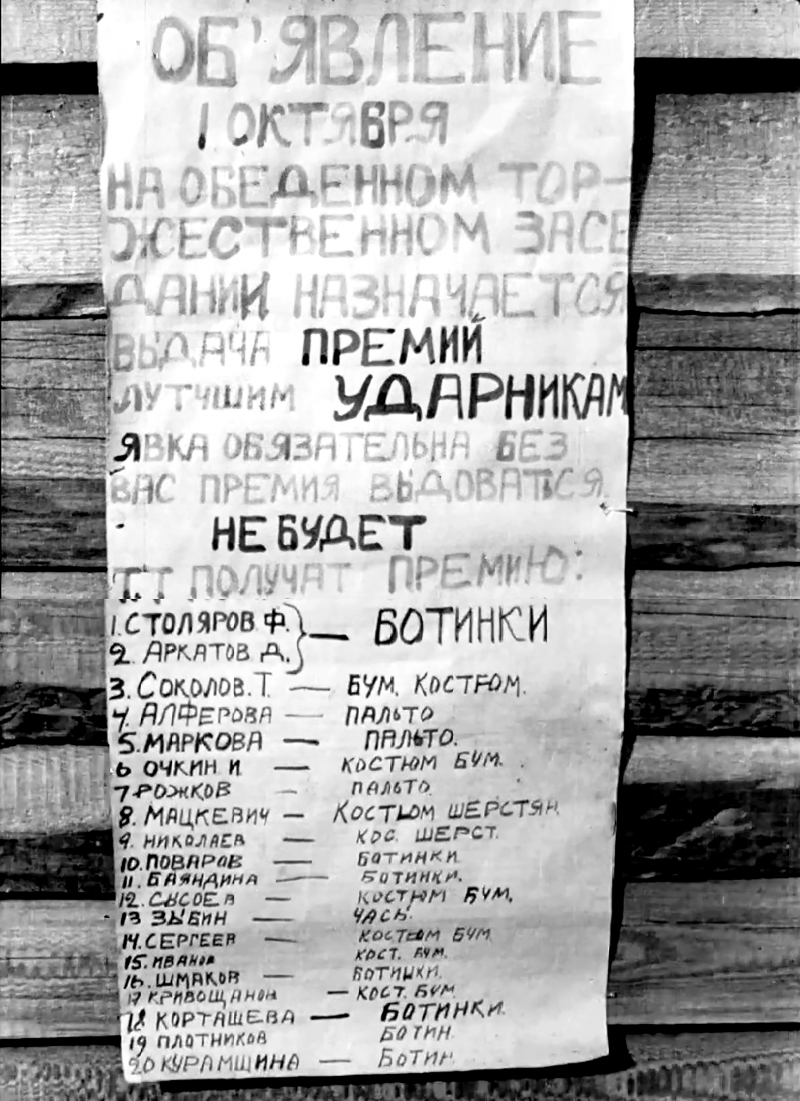 ОБ'ЯВЛЕНИЕ
1 ОКТЯБРЯ
НА ОБЕДЕННОМ ТОР-
ЖЕСТВЕННОМ ЗАСЕ
ДАНИИ НАЗНАЧАЕТСЯ
ВЫДАЧА ПРЕМИЙ
ЛУТЧШИМ УДАРНИКАМ
ЯВКА ОБЯЗАТЕЛЬНА БЕЗ
ВАС ПРЕМИЯ ВЫДОВАТЬСЯ
НЕ БУДЕТ
ТТ ПОЛУЧАТ ПРЕМИЮ:
1. СТОЛЯРОВ Ф. } — БОТИНКИ
2. АРКАТОВ Д.
3. СОКОЛОВ. Т. — БУМ. КОСТЮМ.
4. АЛФЕРОВА — ПАЛЬТО
5. МАРКОВА — ПАЛЬТО.
6 ОЧКИН И — КОСТЮМ БУМ.
7 РОЖКОВ — ПАЛЬТО.
8. МАЦКЕВИЧ — КОСТЮМ ШЕРСТЯН.
9. НИКОЛАЕВ — КОС. ШЕРСТ.
10. ПОВАРОВ — БОТИНКИ
11. БАЯНДИНА — БОТИНКИ.
12. СЫСОЕВ — КОСТЮМ БУМ.
13 ЗЫБИН — ЧАСЫ.
14. СЕРГЕЕВ — КОСТЮМ БУМ.
15. ИВАНОВ КОСТ. БУМ.
16. ШМАКОВ — БОТИНКИ.
17 КРИВОЩАНОВ — КОСТ. БУМ.
18 КОРТАШЕВА — БОТИНКИ.
19 ПЛОТНИКОВ БОТИН.
20 КУРАМШИНА — БОТИН.